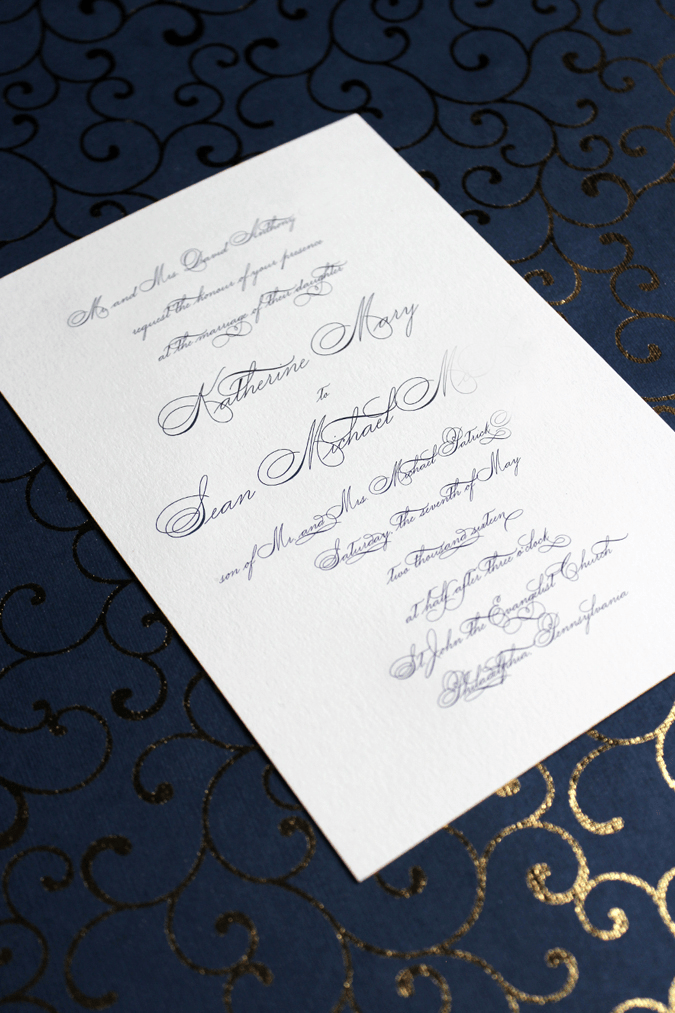 Mr. and Mrs. David Anthony
request the honour of your presence
at the marriage of their daughter
Katherine Mary
to
Sean Michael
son of Mr. and Mrs. Michael Patrick
Saturday, the seventh of May
two thousand sixteen
at half after three o'clock
St. John the Evangelist Church
Philadelphia, Pennsylvania